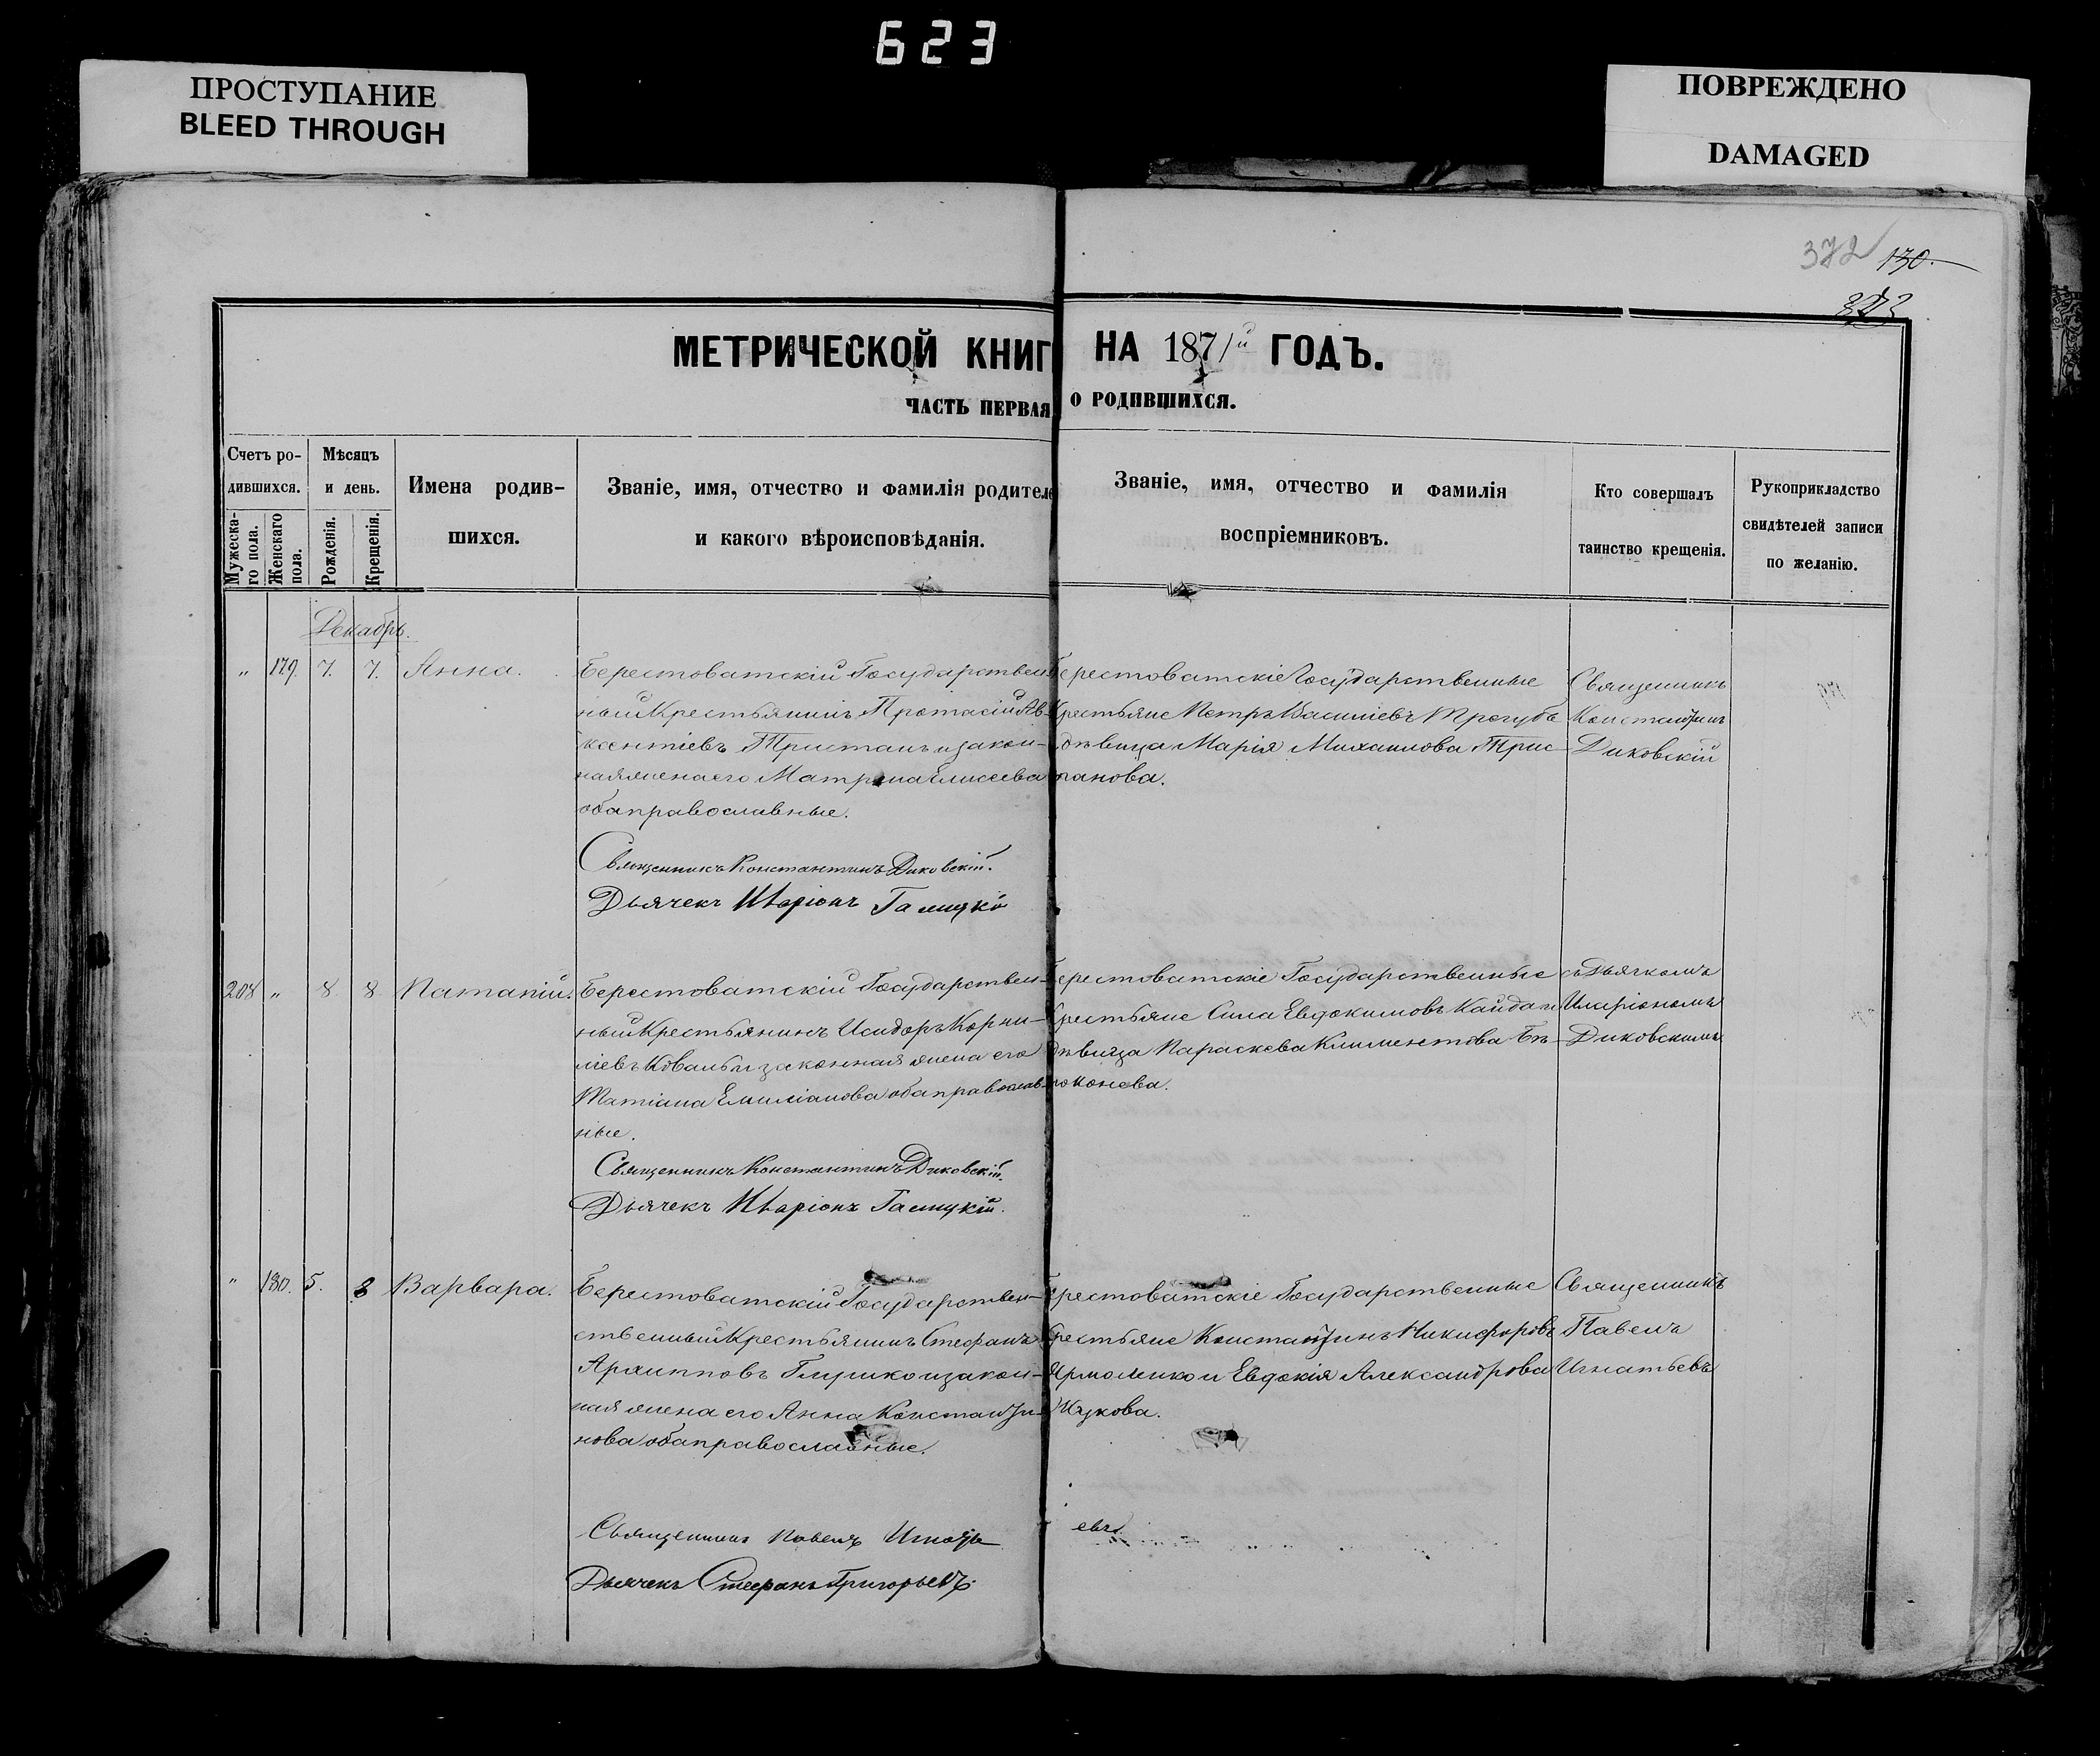 623
ПРОСТУПАНИЕ
BLEED THROUGH
ПОВРЕЖДЕНО
DAMAGED
372 130.
МЕТРИЧЕСКОЙ КНИГ НА 1871й ГОДЪ.
ЧАСТЬ ПЕРВАЯ О РОДИВШИХСЯ.
Счетъ ро-
дившихся.
Мужеска-
го пола.
Женскаго
пола.
Мѣсяцъ
и день.
Рожденія.
Крещенія.
Имена родив-
шихся.
Званіе, имя, отчество и фамилія родителе
и какого вѣроисповѣданія.
Званіе, имя, отчество и фамилія
воспріемниковъ.
Кто совершалъ
таинство крещенія.
Рукоприкладство
свидѣтелей записи
по желанію.
Декабрь.
" 179. 7. 7. Анна.
Берестоватскій Государствен-
ный Крестьянинъ Протасій Ав-
ксентіевъ Тристанъ и закон-
ная жена его Матрона Елисеева
оба православные.
Священникъ Константинъ Диковскій.
Дьячекъ Иларіонъ Галицкій
Берестоватскіе Государственные
Крестьяне Петръ Василіевъ Трегубъ
дѣвица Марія Михаилова Трис-
танова.
Священникъ
Константинъ
Диковскій
208 " 8. 8. Патапій.
Берестоватскій Государствен-
ный Крестьянинъ Исидоръ Корни-
ліевъ Коваль и законная жена его
Татіана Емиліанова оба православ-
ные.
Священникъ Константинъ Диковскій.
Дьячекъ Иларіонъ Галицкій.
Берестоватскіе Государственные
Крестьяне Сила Евдокимовъ Кайдан
дѣвица Параскева Климентова Бѣ-
локонева.
съ Дьячкомъ
Иларіономъ
Диковскимъ
" 180. 5. 8 Варвара.
Берестоватскій Государствен-
ственный Крестьянинъ Стефанъ
Архипповъ Глушко и закон-
ная жена его Анна Константи-
нова оба православные.
Священникъ Павелъ Игнать
евъ.
Дьячекъ Стефанъ Григорьевъ.
Берестоватскіе Государственные
Крестьяне Константинъ Никифоровъ
Ярмоленко и Евдокія Александрова
Жукова.
Священникъ
Павелъ
Игнатьевъ